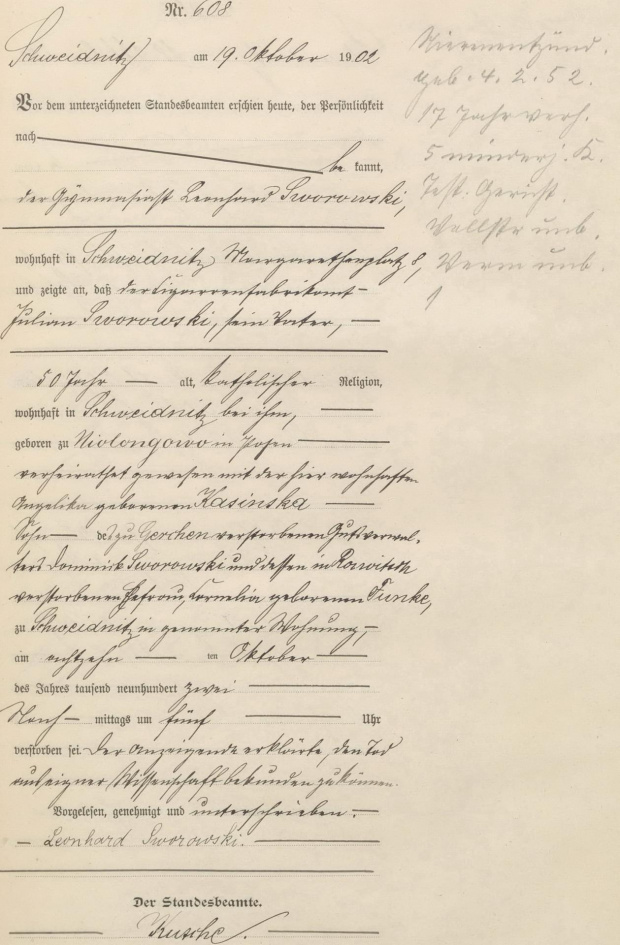 Nr. 608
Schweidnitz am 19. Oktober 1902
Vor dem unterzeichneten Standesbeamten erschien heute, der Persönlichkeit
nach
be kannt,
der Gymnasiast Leonhard Sworowski,
wohnhaft in Schweidnitz Margarethenplatz 8,
und zeigte an, daß der Cigarrenfabrikant
Julian Sworowski, sein Vater,
50 Jahr alt, katholischer Religion,
wohnhaft in Schweidnitz bei ihm,
geboren zu in Posen
verheirathet gewesen mit der hier wohnhaften
Angelika geborenen Kasinska
Sohn des zu Gerchen verstorbenen Gutsverwal-
ters Dominik Sworowski und dessen in Rawitsch
verstorbenen Ehefrau, Cornelia geborenen Funke,
zu Schweidnitz in genannter Wohnung,
am achtzehn ten Oktober
des Jahres tausend neunhundert zwei
Nach mittags um fünf Uhr
verstorben sei. Der Anzeigende erklärte, den Tod
aus eigner Wissenschaft bekunden zu können.
Vorgelesen, genehmigt und unterschrieben.
Leonhard Sworowski.
Der Standesbeamte.
Kusche.
Nierenentzünd.
geb. 4. 2. 52.
17 Jahr verh.
5 minderj. K.
Test. Gericht.
Vollstr unb.
Verm unb.